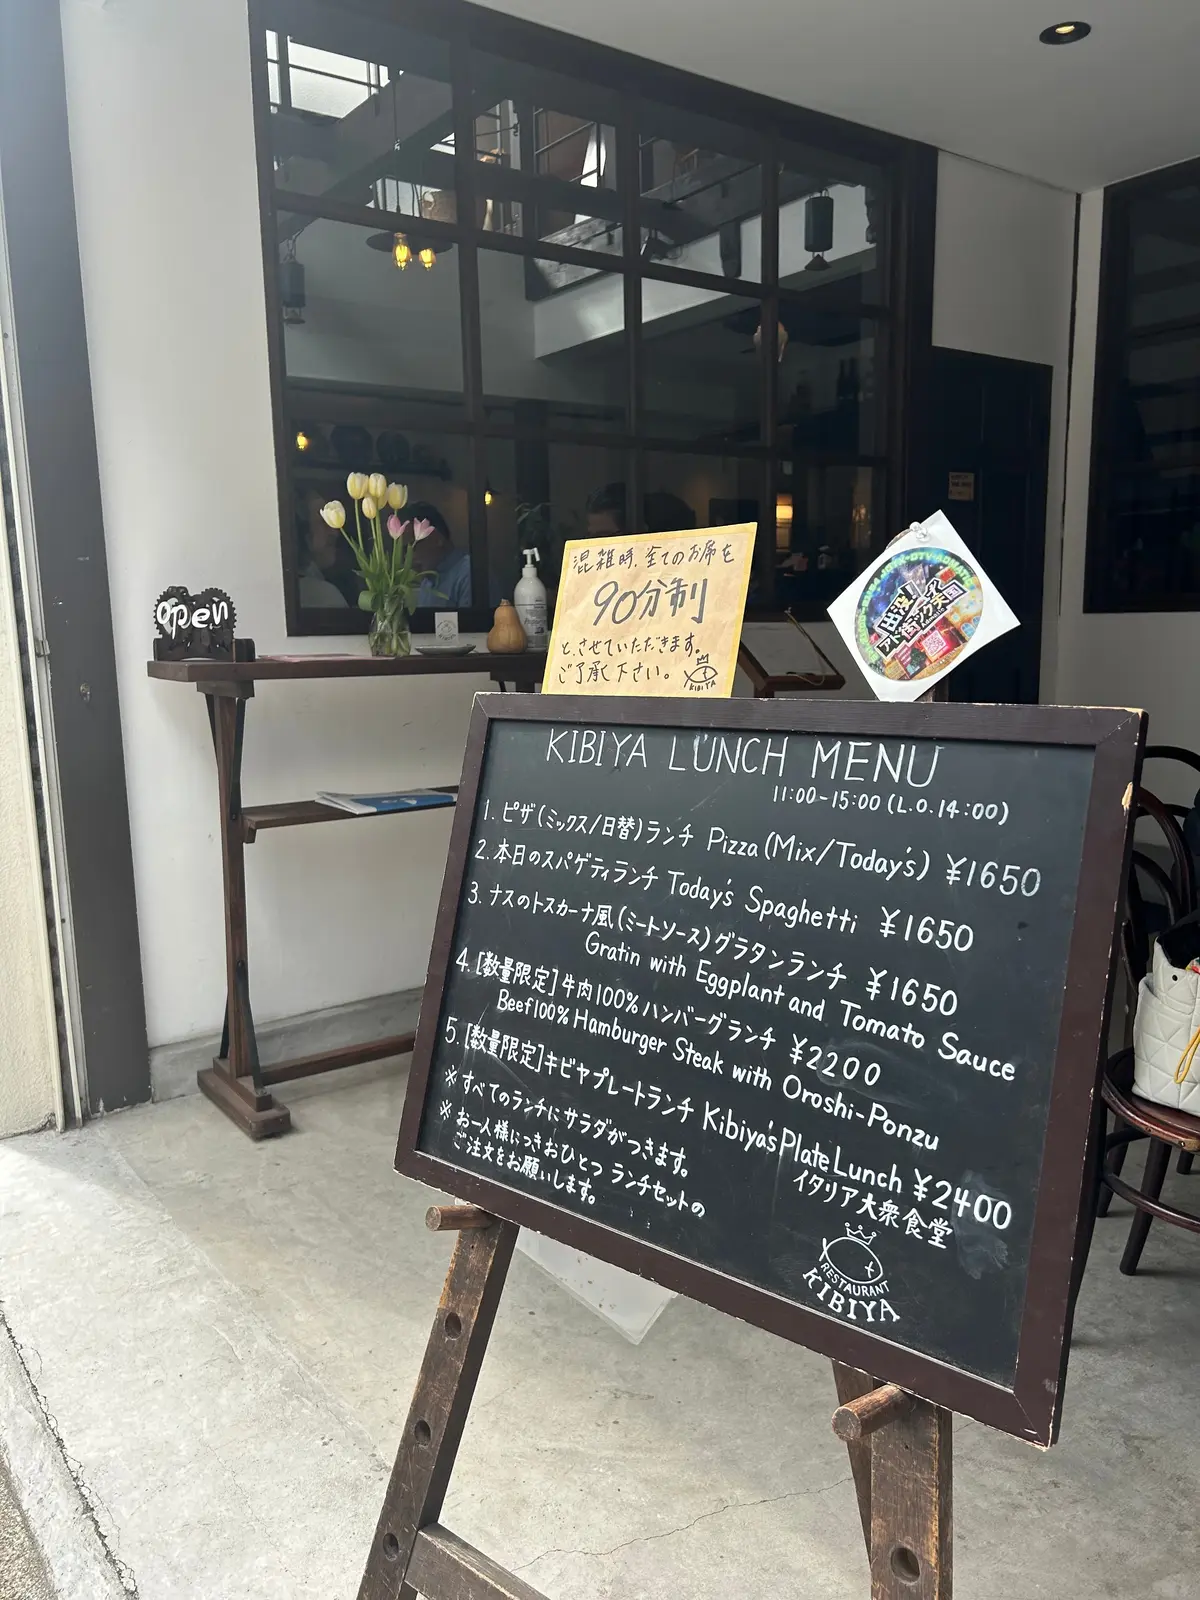 open
混雑時、全てのお席を
90分制
とさせていただきます。
ご了承下さい。
KIBIYA
出没!
アド街ック天国
KIBIYA LUNCH MENU
11:00-15:00 (L.O.14:00)
1. ピザ(ミックス/日替)ランチ Pizza (Mix/Today's) ¥1650
2. 本日のスパゲティランチ Today's Spaghetti ¥1650
3. ナスのトスカーナ風(ミートソース)グラタンランチ ¥1650
Gratin with Eggplant and Tomato Sauce
4. [数量限定]牛肉100%ハンバーグランチ ¥2200
Beef100% Hamburger Steak with Oroshi-Ponzu
5. [数量限定]キビヤプレートランチ Kibiya's Plate Lunch ¥2400
※ すべてのランチにサラダがつきます。
※ お一人様につきおひとつ ランチセットの
ご注文をお願いします。
イタリア大衆食堂
RESTAURANT
KIBIYA